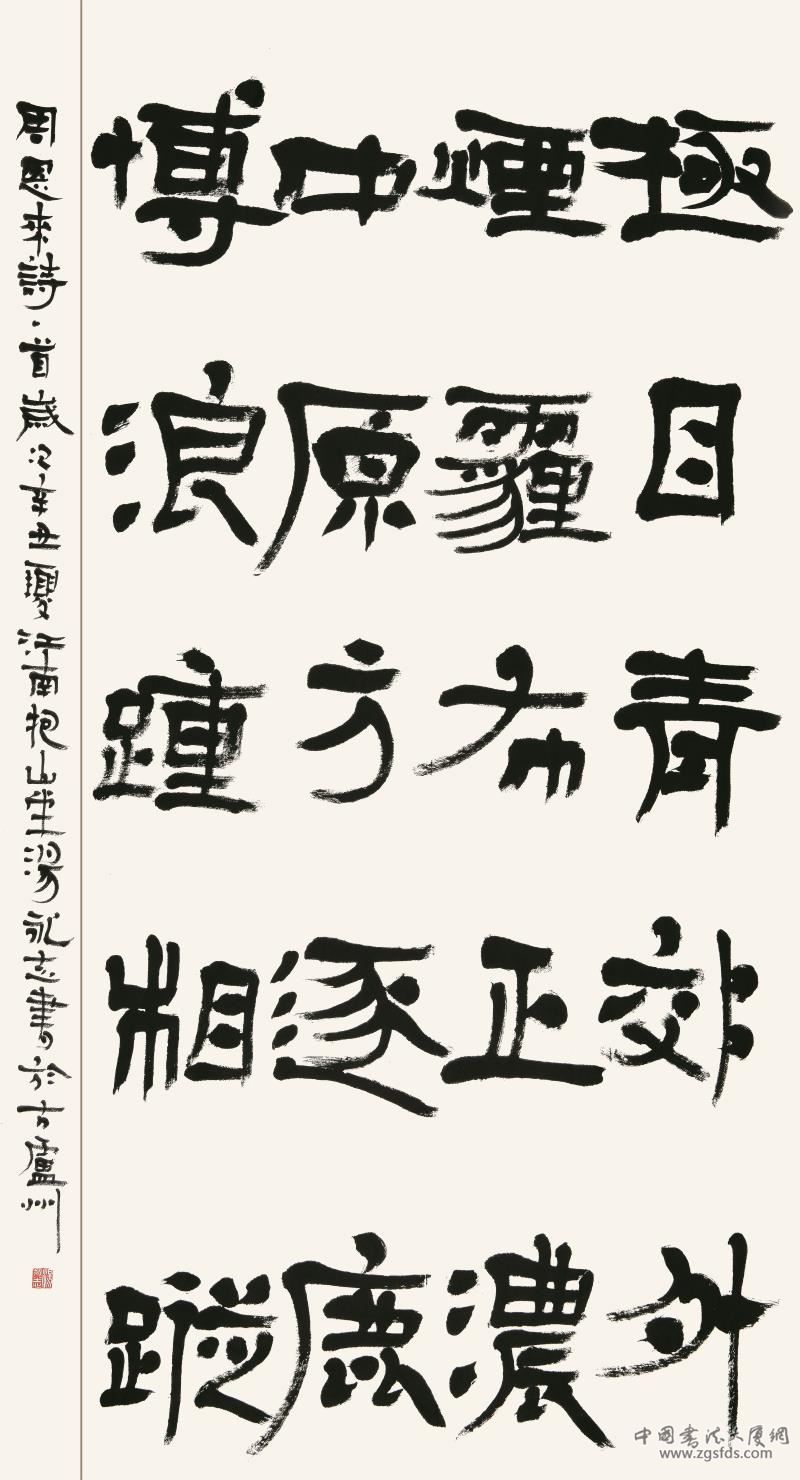 極目青郊外
煙霾布正濃
中原方逐鹿
博浪踵相蹤
周恩來詩一首歲次辛丑夏江南抱山堂湯永志書於古廬州
中國書法大廈網
www.zgsfds.com